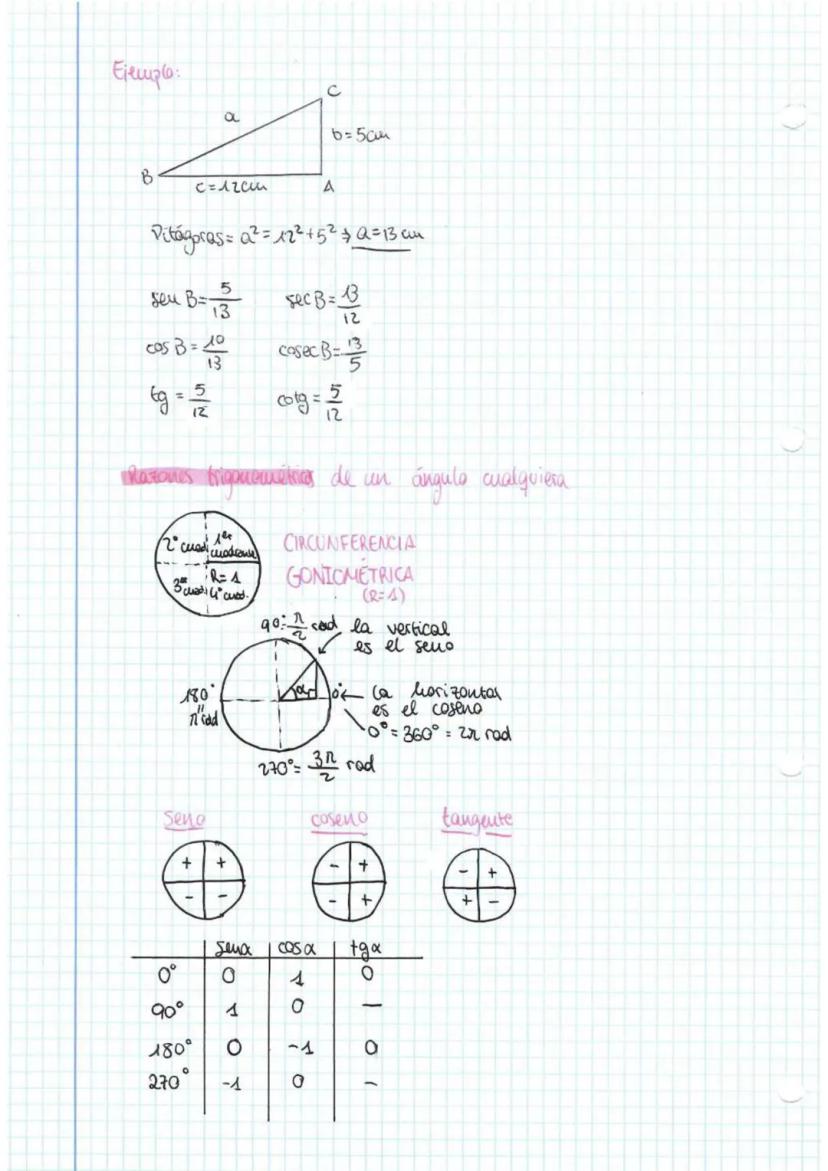 Ejemplo:
C
a
b = 5cm
B
c = 12cm
A
Pitágoras = a² = 12² + 5² → a = 13 cm
sen B = 5/13 sec B = 13/12
cos B = 10/13 cosec B = 13/5
tg = 5/12 cotg = 5/12
Razones trigonométricas de un ángulo cualquiera
2º cuad. 1er cuadrante
3er cuad. R = 1
4º cuad.
CIRCUNFERENCIA
GONIOMÉTRICA
(R=1)
90º = π/2 rad
la vertical
es el seno
180º
π rad
α
0º
la horizontal
es el coseno
0º = 360º = 2π rad
270º = 3π/2 rad
seno coseno tangente
+ + - + - +
- - - + + -
senα cosα tgα
0º 0 1 0
90º 1 0 —
180º 0 -1 0
270º -1 0 -